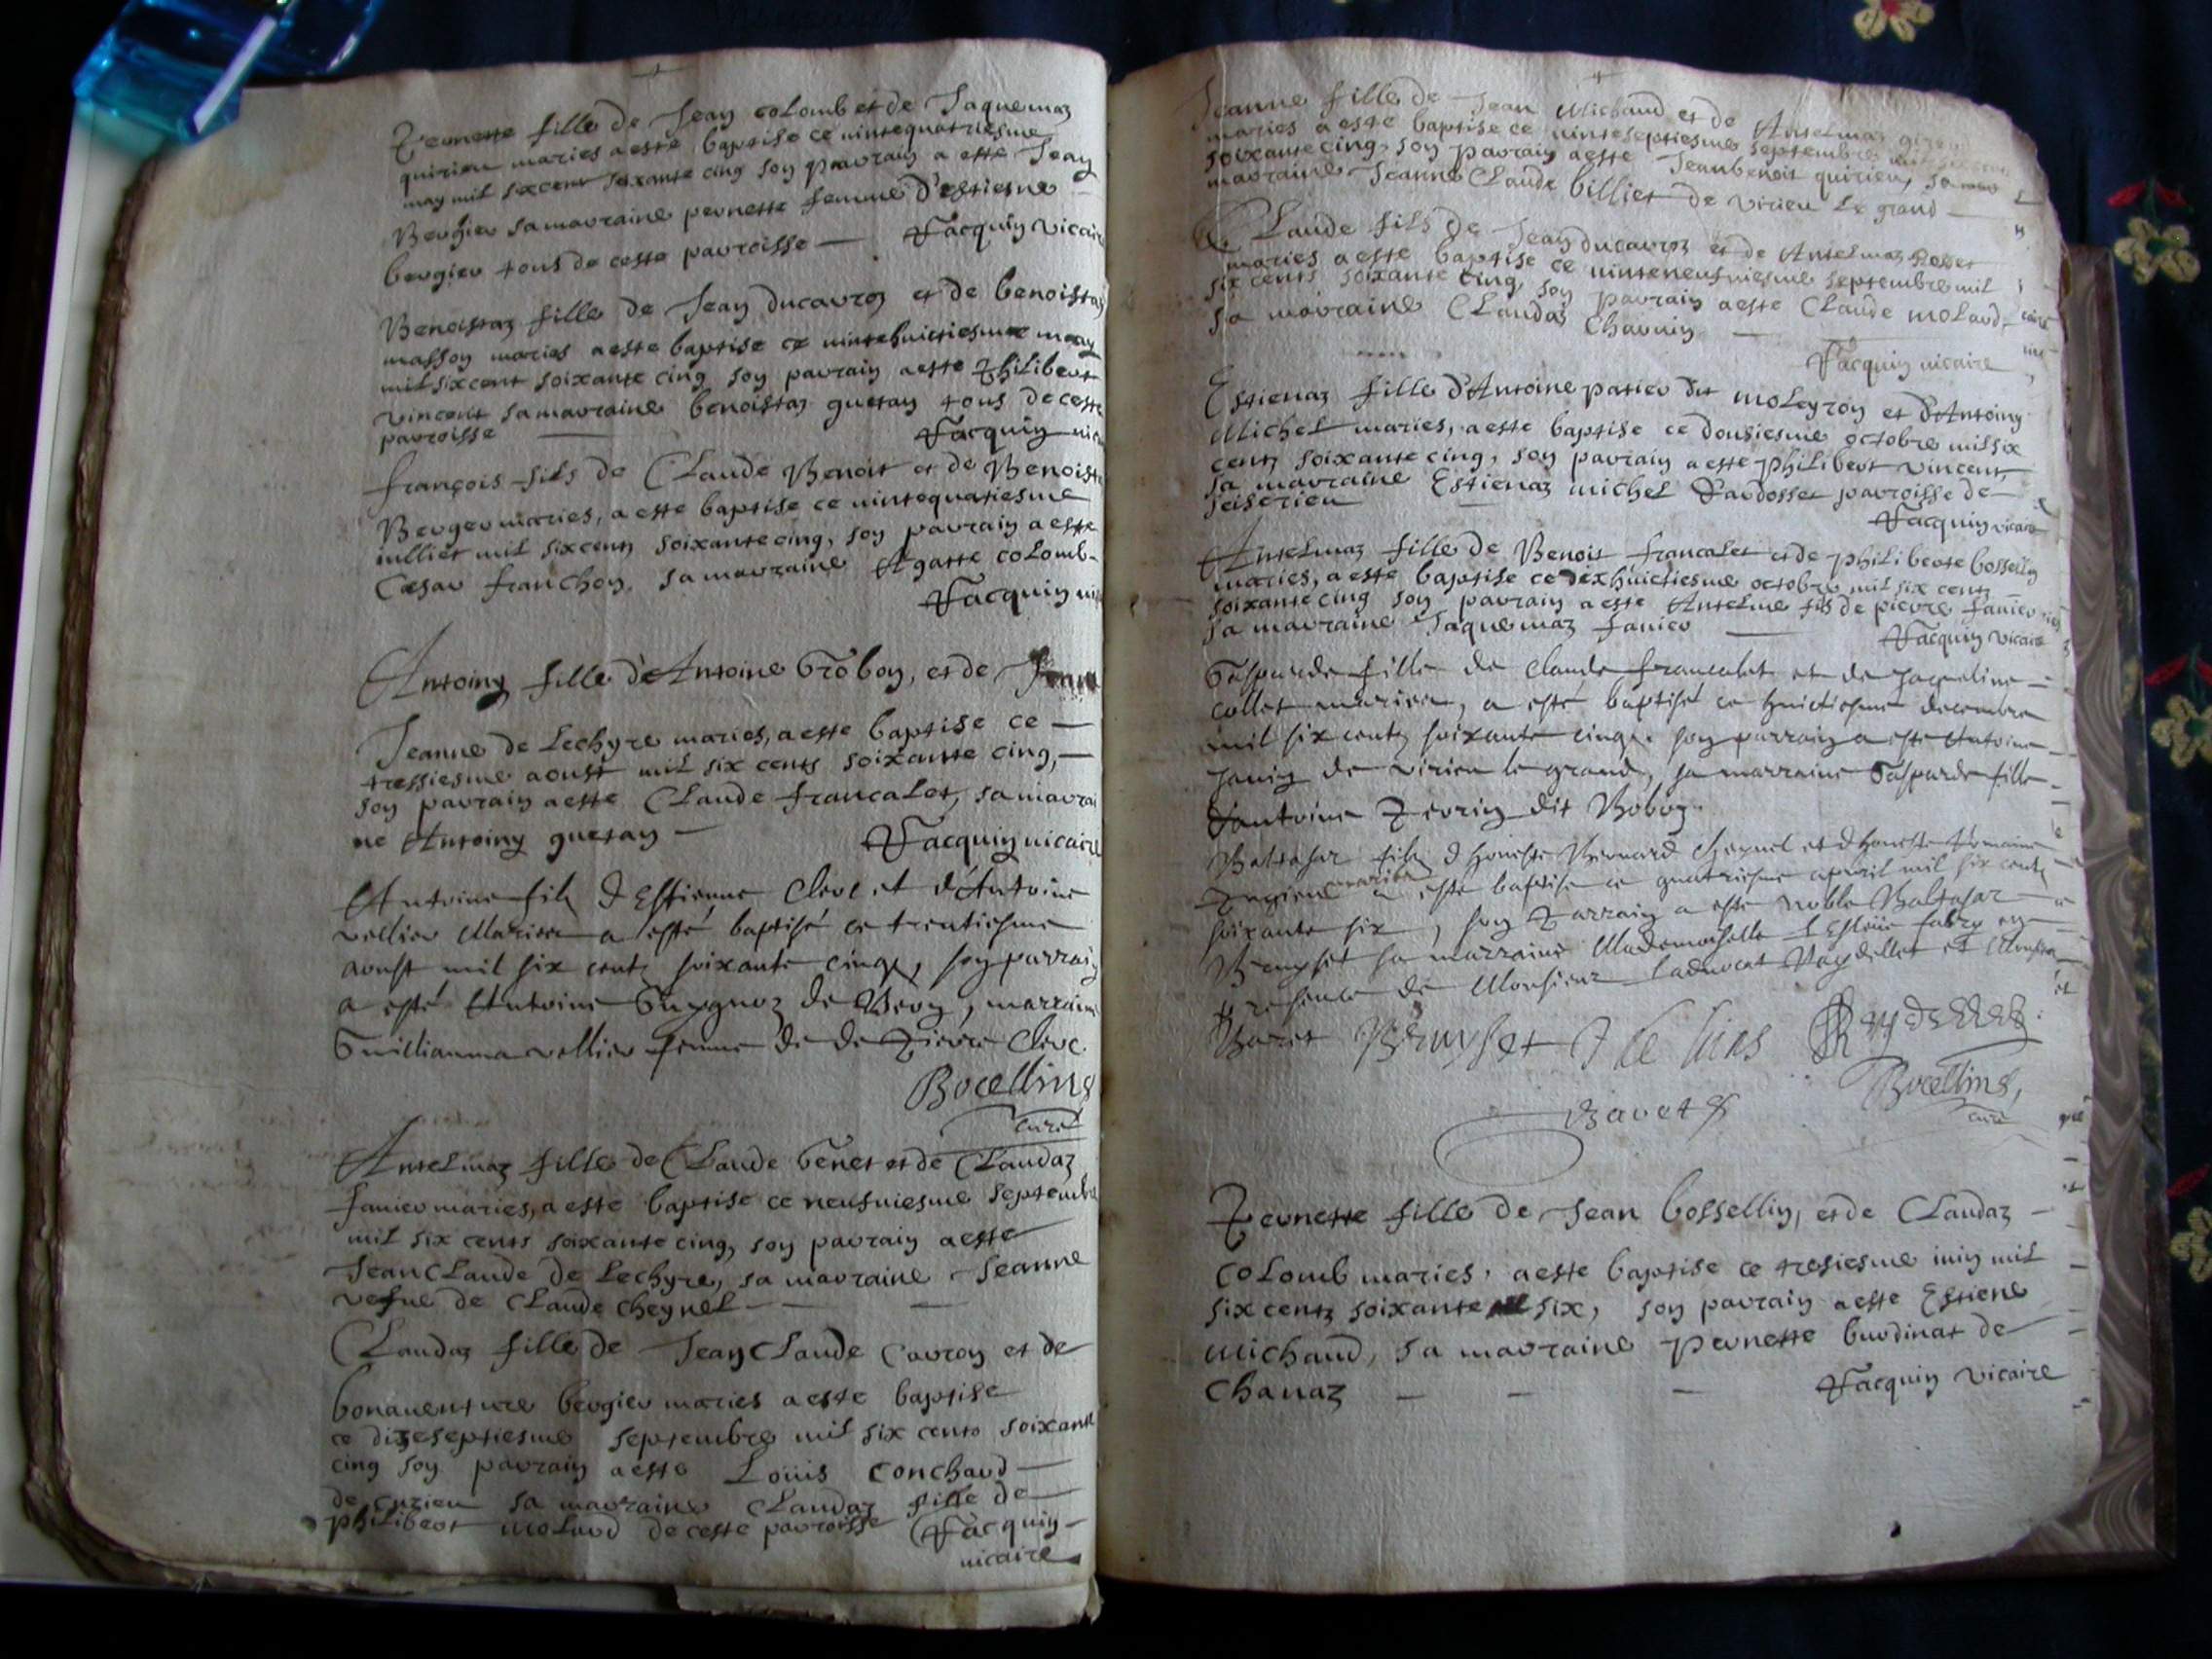 Pernette fille de Jean colomb et de Jaquemaz
quirieu maries a este baptise ce vintequatriesme
may mil sixcent soixante cinq son parrain a este Jean
Bergier sa marraine pernette femme d'estiesne
bergier tous de ceste parroisse — Jacquin vicaire
Benoistaz fille de Jean ducarroz et de benoistaz
masson maries a este baptise ce vintehuictiesme may
mil sixcent soixante cinq son parrain a este Philibert
vincent sa marraine benoistaz guetan tous de ceste
parroisse — Jacquin vic
françois fils de Claude Benoit et de Benoiste
Berger maries, a este baptise ce vintequatiesme
iulliet mil six centz soixante cinq, son parrain a este
Cesar franchon, sa marraine Agatte colomb-
Jacquin vi
Antoiny fille d'Antoine Grobon, et de
Jeanne de Lechyre maries, a este baptise ce —
tressiesme aoust mil six cents soixante cinq, —
son parrain a este Claude francalet, sa marrai
ne Antoiny guetan — Jacquin vicaire
Antoine filz d Estienne Clerc et d'Antoine
vellier Mariez a esté baptisé ce trentiesme
aoust mil six centz soixante cinq, son parrain
a esté Antoine de Beon, marraine
Guillianma vellier femme de de Pierre Clerc.
Bocellins
curé
Antelmaz fille de Claude Genet et de Claudaz
Janier maries, a este baptise ce neufuiesme septembre
mil six cents soixante cinq, son parrain a este
JeanClaude de Lechyre, sa marraine Jeanne
vefue de Claude Cheynel — —
Claudaz fille de JeanClaude Carron et de
bonauenture bergier maries a este baptise
ce dizeseptiesme septembre mil six cents soixante
cinq son parrain a este Loüis Conchard —
de cuzieu sa marraine Claudaz fille de —
philibert molard de ceste parroisse Jacquin -
vicaire
Jeanne fille de Jean Michaud et de Antelmaz
maries a este baptise ce vinteseptiesme septembre
soixante cinq, son parrain a este Jeanbenoit quirieu, sa
marraine JeanneClaude billiet de virieu le grand —
Claude fils de Jean ducarroz et de Antelmaz Rosset
maries a este baptise ce vinteneufuiesme septembre mil
six cents soixante cinq, son parrain a este Claude molard,
sa marraine Claudaz Charuin —
Jacquin vicaire
Estienaz fille d'Antoine patier dit moleyron et d'Antoiny
Michel maries, a este baptise ce dousiesme octobre mil six
centz soixante cinq, son parrain a este philibert vincent,
sa marraine Estienaz michel d'ardosset parroisse de —
seiserieu — Jacquin vicaire
Antelmaz fille de Benoit francalet et de philiberte bossellin
maries, a este baptise ce dixhuictiesme octobre mil six centz
soixante cinq son parrain a este Antelme fils de pierre Janier
sa marraine Jaquemaz Janier — Jacquin vicaire
Gasparde fille de Claude francalet et de Jaqueline —
collet mariez, a esté baptisé ce huictiesme decembre
mil six centz soixante cinq. son parrain a este Antoine
Janin de virieu le grand, sa marraine Gasparde fille
d'antoine Perrin dit Boboz.
Baltasar filz d honeste Bernard Cheynel et d honeste Romaine
mariez a este baptise ce quatriesme apuril mil six centz
soixante six, son Parrain a este noble Baltasar —
Breysset sa marraine Mademoiselle d Estelie fabry en —
presence de Monsieur l aduocat Reydellet et
Baret Reydellet
Bocellins,
Baret curé
Pernette fille de Jean bossellin, et de Claudaz —
colomb maries, a este baptise ce tresiesme iuin mil
six centz soixante six, son parrain a este Estiene
michaud, sa marraine pernette burdinat de
Chanaz — — — Jacquin vicaire